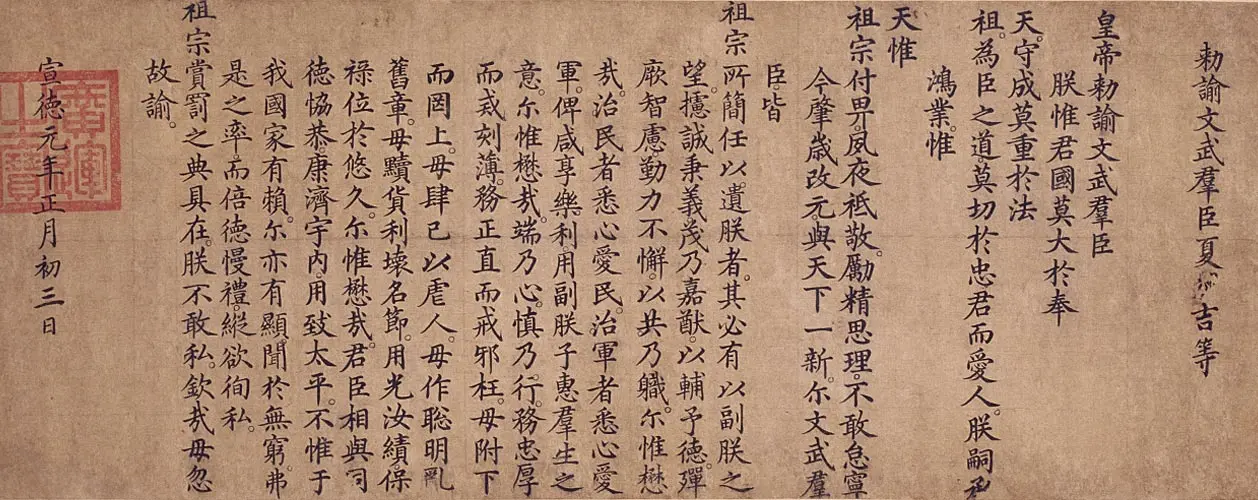 勅諭文武羣臣夏吉等
皇帝勅諭文武羣臣
朕惟君國莫大於奉
天。守成莫重於法
祖。為臣之道。莫切於忠君而愛人。朕嗣
鴻業。惟
天惟
祖宗付畀。夙夜祗敬。勵精思理。不敢怠寧
今肇歲改元。與天下一新。尓文武羣
臣。皆
祖宗所簡任。以遺朕者。其必有以副朕之
望。攄誠秉義。茂乃嘉猷。以輔予德。殫
厥智慮。勤力不懈。以共乃職。尓惟懋
哉。治民者悉心愛民。治軍者悉心愛
軍。俾咸享樂利。用副朕子惠羣生之
意。尓惟懋哉。端乃心。慎乃行。務忠厚
而戒刻薄。務正直而戒邪枉。毋附下
而罔上。毋肆己以虐人。毋作聰明亂
舊章。毋黷貨利壞名節。用光汝績。保
祿位於悠久。尓惟懋哉。君臣相與同
德恊恭。康濟宇內。用致太平。不惟于
我國家有賴。尓亦有顯聞於無窮。弗
是之率。而倍德慢禮。縱欲徇私。
祖宗賞罰之典具在。朕不敢私。欽哉毋忽
故諭。
宣德元年正月初三日
廣運之寶